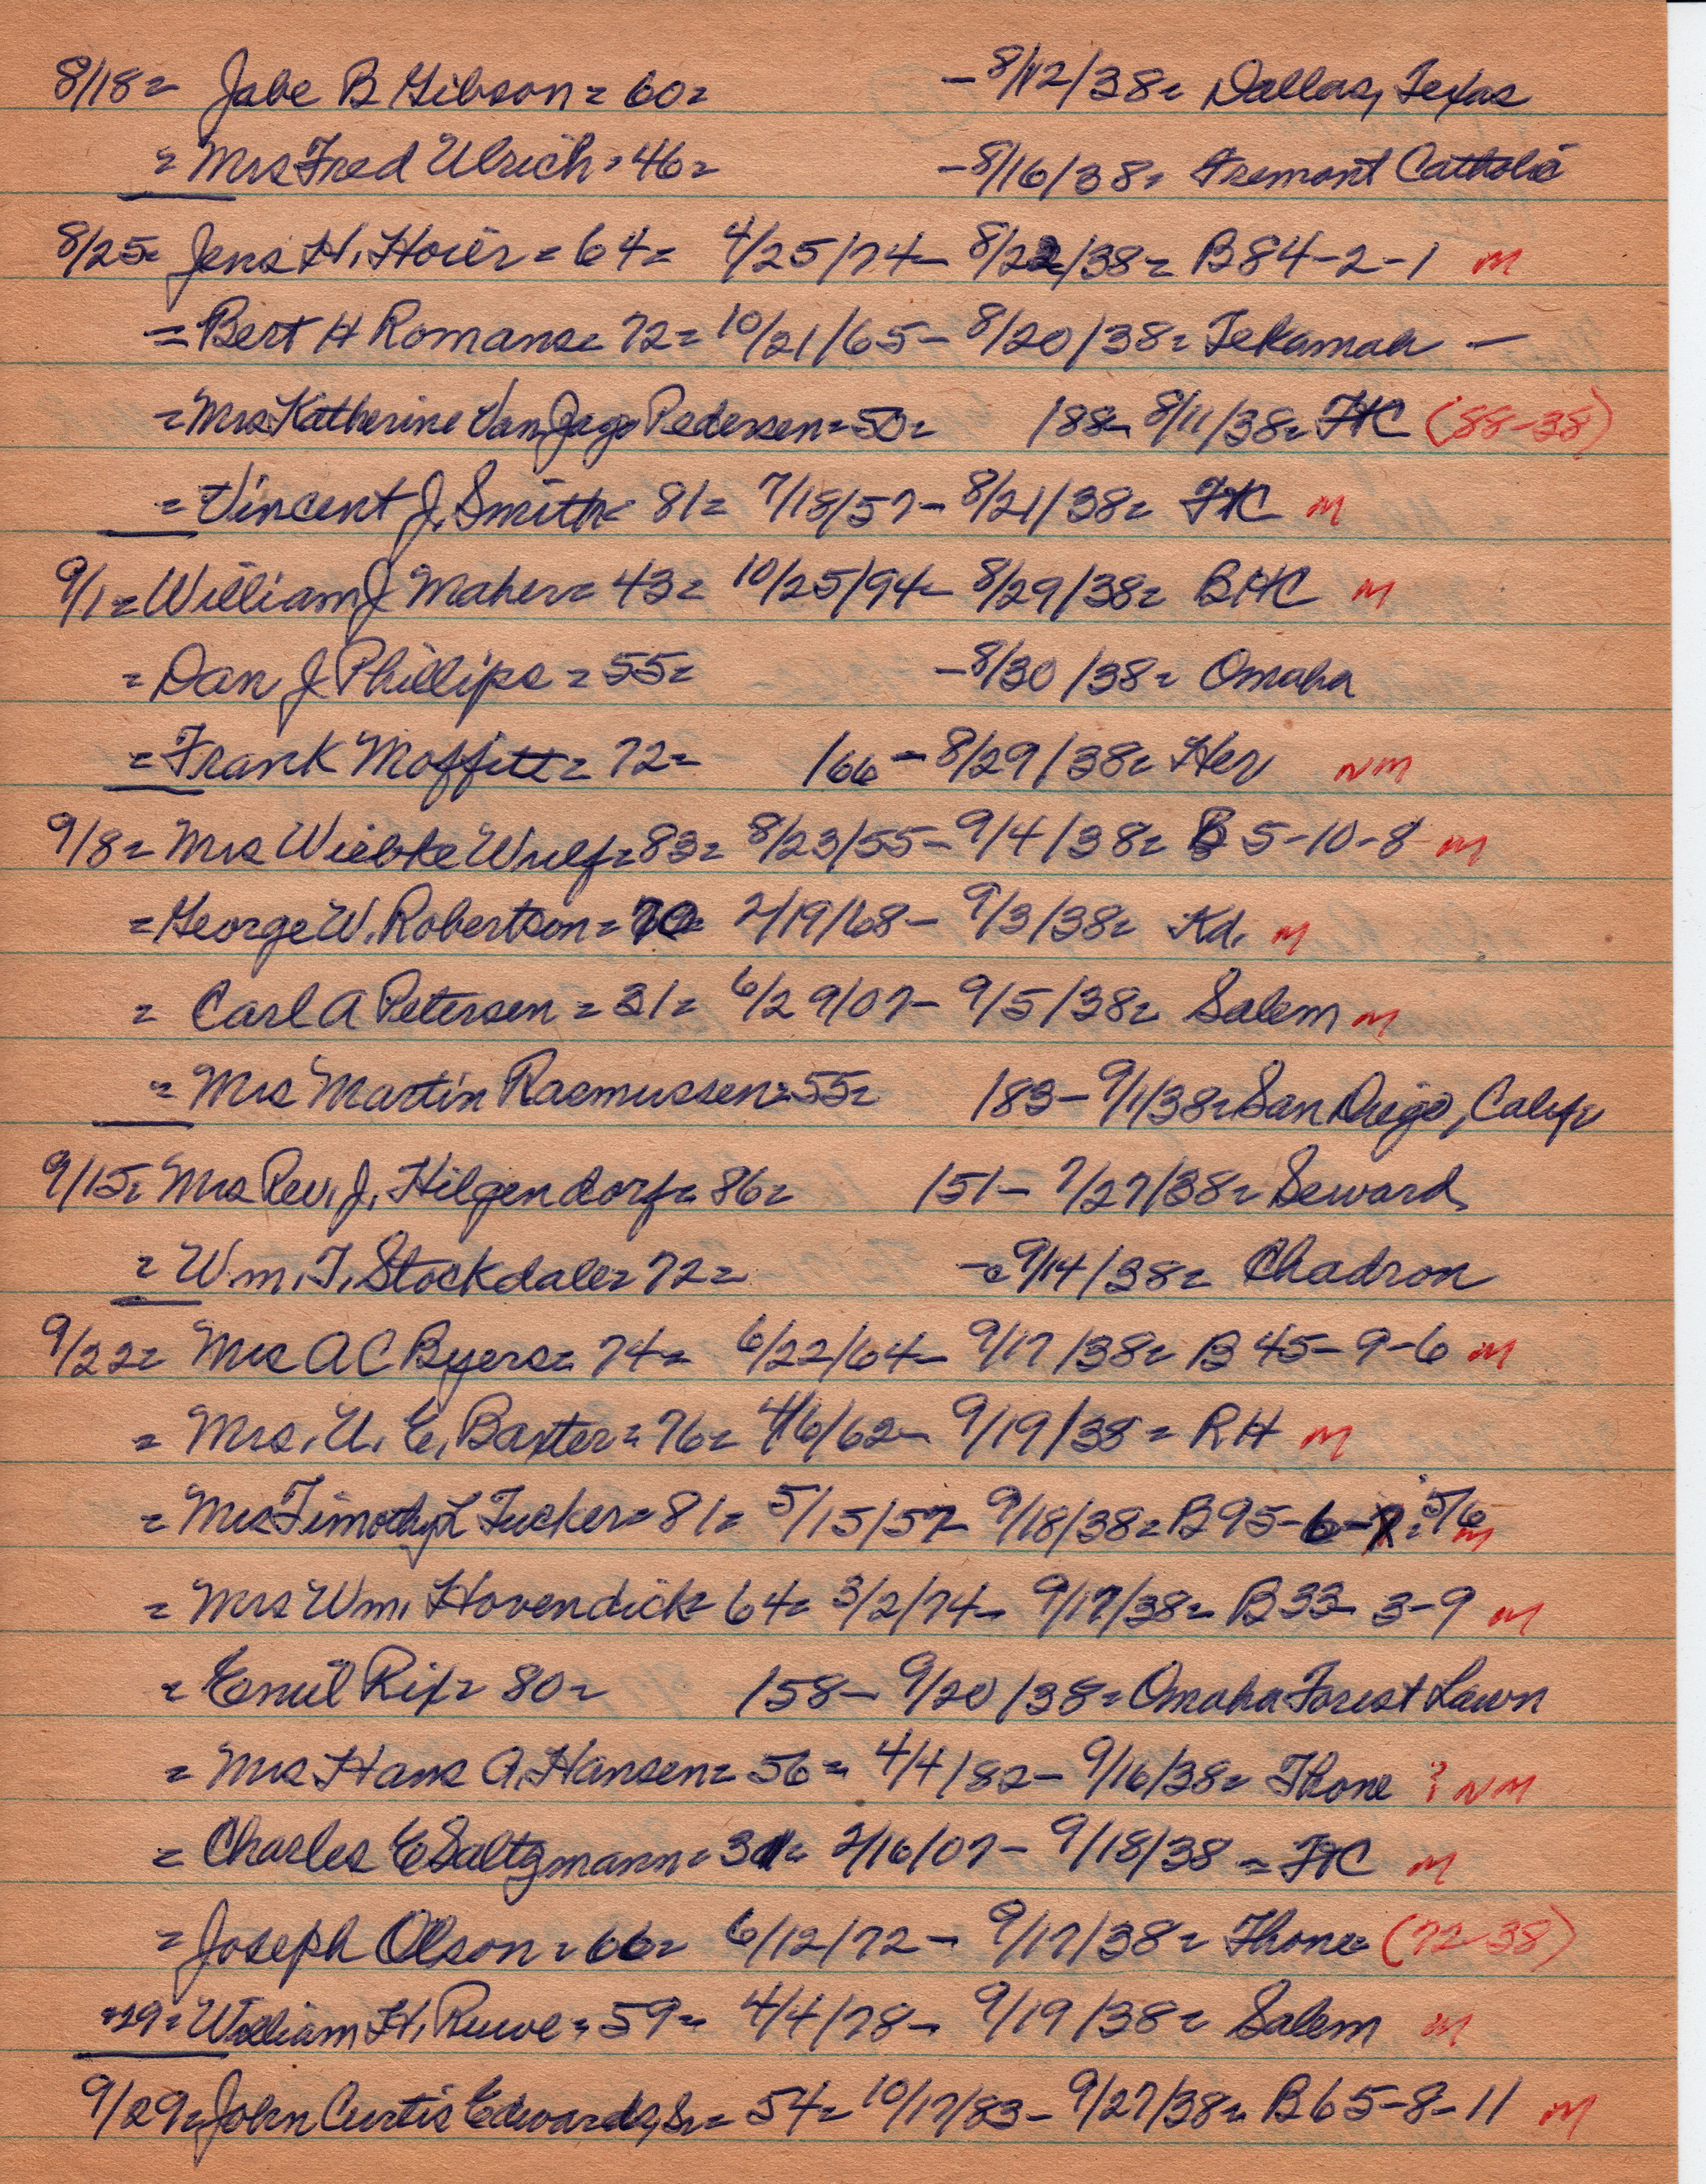 8/18= Jabe B Gibson = 60= - 8/12/38= Dallas, Texas
= Mrs Fred Ulrich = 46= - 8/16/38= Fremont Catholic
8/25= Jens H. Hoier = 64= 4/25/74- 8/22/38= B84-2-1 M
= Bert H Romans= 72= 10/21/65- 8/20/38= Tekamah -
= Mrs Katherine Van Jago Pedersen= 50= 188- 8/11/38= FHC (88-38)
= Vincent J. Smith= 81= 7/18/57- 8/21/38= FHC M
9/1= William J Maher= 43= 10/25/94- 8/29/38= BHC M
= Dan J Phillips = 55= - 8/30/38= Omaha
= Frank Moffitt= 72= 166- 8/29/38= Her NM
9/8= Mrs Wiebke Wulf= 83= 8/23/55- 9/4/38= B 5-10-8 M
= George W. Robertson= 70= 2/19/68- 9/3/38= Kd. M
= Carl A Petersen = 31= 6/29/07- 9/5/38= Salem M
= Mrs Martin Rasmussen= 55= 183- 9/1/38= San Diego, Calif
9/15= Mrs Rev. J. Hilgendorf= 86= 151- 7/27/38= Seward
= Wm. T. Stockdale= 72= - 9/14/38= Chadron
9/22= Mrs A C Byers= 74= 6/22/64- 9/17/38= B 45-9-6 M
= Mrs. U. E. Baxter= 76= 4/6/62- 9/19/38= RH M
= Mrs Timothy L Tucker= 81= 5/15/57- 9/18/38= B95-6- 5/6 M
= Mrs Wm. Hovendick= 64= 3/2/74- 9/17/38= B33-3-9 M
= Emil Rix= 80= 158- 9/20/38= Omaha Forest Lawn
= Mrs Hans A. Hansen= 56= 4/4/82- 9/16/38= Thone ? NM
= Charles E Saltzmann= 31= 2/16/07- 9/18/38= FHC M
= Joseph Olson= 66= 6/12/72- 9/17/38= Thone= (72-38)
=29= William H. Ruwe= 59= 4/4/78- 9/19/38= Salem M
9/29= John Curtis Edwards, Sr= 54= 10/17/83- 9/27/38= B65-8-11 M